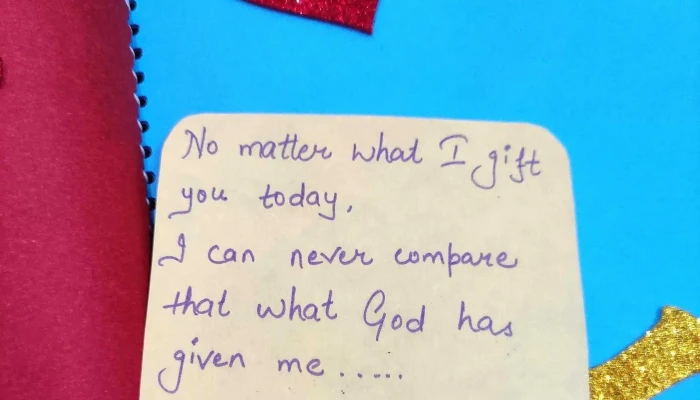 No matter what I gift
you today,
I can never compare
that what God has
given me.....